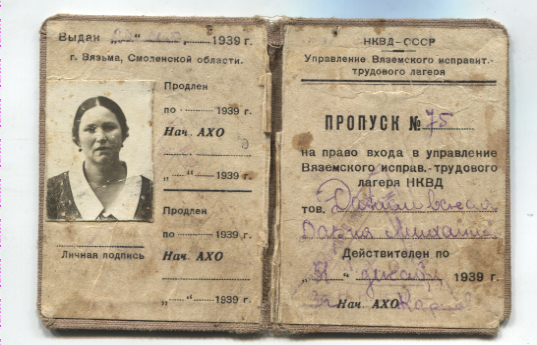 Выдан 1939 г.
г. Вязьма, Смоленской области.
Продлен
по 1939 г.
Нач. АХО
„ “ 1939 г.
Продлен
по 1939 г.
Нач. АХО
„ “ 1939 г.
Личная подпись
НКВД-СССР
Управление Вяземского исправит.-
трудового лагеря
ПРОПУСК № 75
на право входа в управление
Вяземского исправ.-трудового
лагеря НКВД
тов.
Дария
Действителен по
„31“ декабря 1939 г.
Нач. АХО